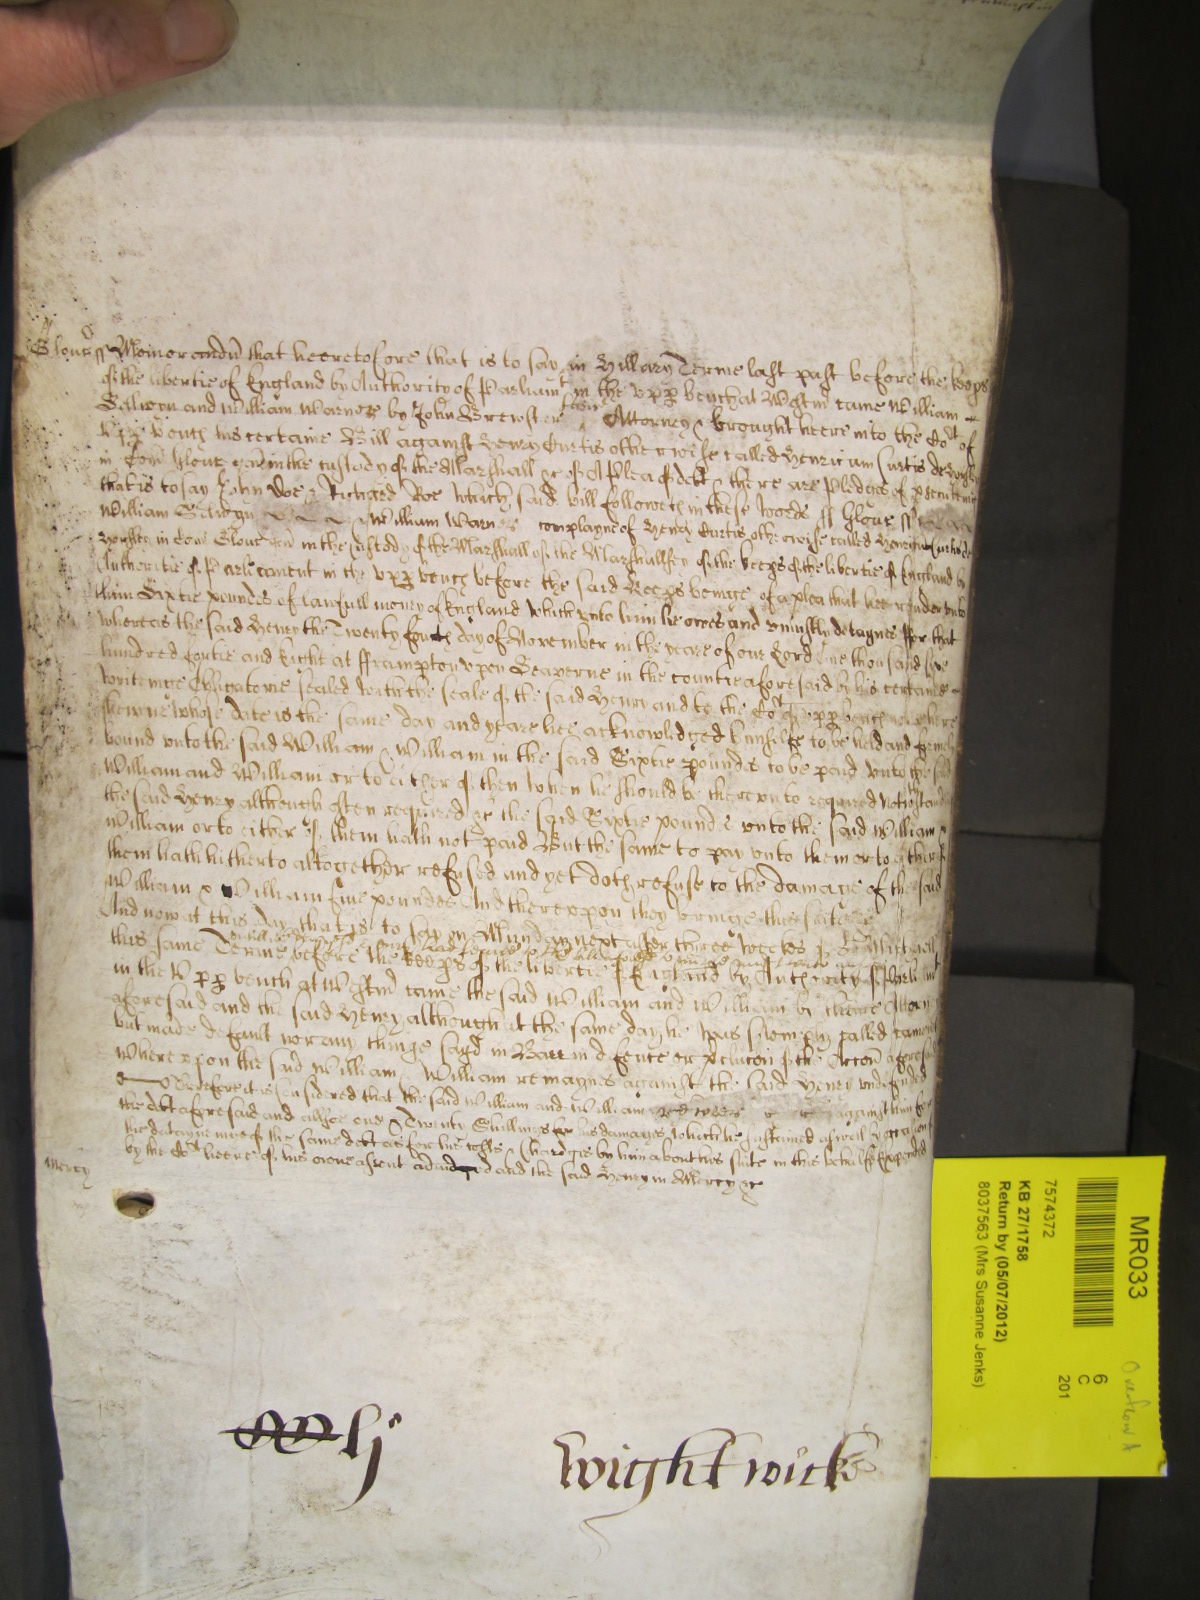 Glouc ss Memorandu that heeretofore that is to say in Hillary Terme last past before the keeps
of the libertie of England by Authority of Parliamt in the upp bench at Westm came William
Selwyn and William Warner by John Brewster their Attorney & brought heere into the Cort of
upp bench his certaine Bill against Henry Curtis otherwise called Henricum Curtis de
in Com Glouc yeo in the custody of the Marshall &c of A Plea of debt & there are Pledges of
that is to say John Doe & Richard Roe which said bill followeth in these words ss Glouc ss
William Selwyn & William Warner complayne of Henry Curtis otherwise called Henricum Curtis de
in Com Glouc yeo in the custody of the Marshall of the Marshallsey of the keeps of the libertie of England by
Authoritie of Parliament in the upp bench before the said Keeps beinge of a plea that hee render unto
them Sixtie poundes of lawfull money of England which unto him he owes and uniustly detaynes ffor that
whereas the said Henry the Twenty fourth day of November in the yeare of our Lord One thousand six
hundred fortie and Eight at fframpton upon Seaverne in the countie aforesaid by his certaine
writeinge Obligatorie sealed with the seale of the said Henry and to the Cort of upp bench now here
shewne whose date is the same day and yeare hee acknowledged himselfe to be held and firmely
bound unto the said William & William in the said Sixtie poundes to be paid unto the said
William and William or to either of them when he should be thereunto required
the said Henry although often required &c the said Sixtie pounds unto the said William &
William or to either of them hath not paid But the same to pay unto them or to either of
them hath hitherto altogether refused and yet doth refuse to the damage of the said
William & William five poundes And thereupon they bringe this suite &c
And now at this day that is to say on Munday next after three weekes of
this same Terme before the keeps of the libertie of England by Authority of Parliamt
in the Upp bench at Westm came the said William and William by theire Attorny
aforesaid and the said Henry although at the same day he was solemply called came not
but made default nor any thinge sayd in Barr in defence or of the Accon aforesaid
whereupon the said William & William remaynes against the said Henry undefended
Therefore it is considered that the said William and William against him
the debt aforesaid and allsoe one & Twenty Shillings for his damages which he susteyned aswell by occasion
the detayneinge of the same debt as for his costs & Chardges by him about his suite in this behalfe Expended
by the Cort heere of his owne assent adiudged and the said Henry in Mercy &c
Mercy
Wightwicke
MR033
6
C
201
7574372
KB 27/1758
Return by (05/07/2012)
8037563 (Mrs Susanne Jenks)